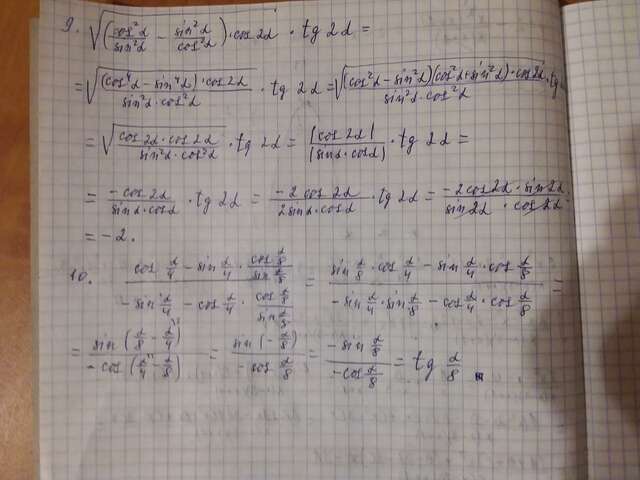 9. √((cos²α/sin²α − sin²α/cos²α)·cos 2α) · tg 2α =
= √((cos⁴α − sin⁴α)·cos 2α / sin²α·cos²α) · tg 2α = √((cos²α − sin²α)(cos²α + sin²α)·cos 2α / sin²α·cos²α) · tg
= √(cos 2α · cos 2α / sin²α · cos²α) · tg 2α = |cos 2α| / |sin α · cos α| · tg 2α =
= −cos 2α / sin α · cos α · tg 2α = −2 cos 2α / 2 sin α · cos α · tg 2α = −2 cos 2α · sin 2α / sin 2α · cos 2α
= −2.
10. (cos α/4 − sin α/4 · (cos α/8 / sin α/8)) / (−sin α/4 − cos α/4 · (cos α/8 / sin α/8)) = (sin α/8 · cos α/4 − sin α/4 · cos α/8) / (−sin α/4 · sin α/8 − cos α/4 · cos α/8) =
= sin(α/8 − α/4) / −cos(α/4 − α/8) = sin(−α/8) / −cos α/8 = −sin α/8 / −cos α/8 = tg α/8